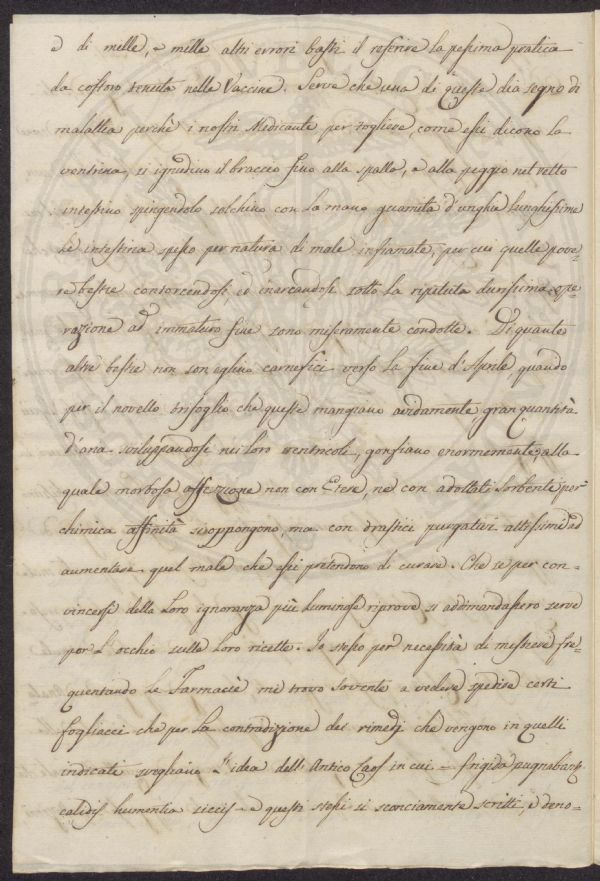 e di mille, e mille altri errori basti il riferire la pessima pratica
da costoro tenuta nelle Vaccine. Serve che una di queste dia segno di
malattia perchè i nostri Medicante per togliere, come essi dicono la
ventrina, si ignudino il braccio fino alla spalla, e alla peggio nel retto
intestino spingendolo solchino con la mano guarnita d'unghie lunghissime
le intestina spesso per natura di male infiamate, per cui quelle pove-
re bestie contorcendosi ed inarcandosi sotto la ripetuta durissima ope-
razione ad immaturo fine sono miseramente condotte. Di quante
altre bestie non son eglino carnefici verso la fine d'Aprile quando
per il novello trifoglio che queste mangiano avidamente gran quantità
d'aria sviluppandosi nei loro ventricoli, gonfiano enormemente, alla
quale morbosa affezione non con Etere, ne con adottati sorbenti per
chimica affinità si oppongono, ma con drastici purgativi attissimi ad
aumentare quel male che essi pretendono di curare. Che se per con-
vincersi della loro ignoranza più luminose riprove si addimandassero serve
por l'occhio sulle loro ricette. Io stesso per necessità di mestiere fre-
quentando le Farmacie mi trovo sovente a vedere spedire certi
fogliacci che per la contradizione dei rimedj che vengono in quelli
indicati svegliano l'idea dell'Antico Caos in cui = frigida pugnabant
calidis humentia siccis = e questi stessi si sconciamente scritti, e deno-